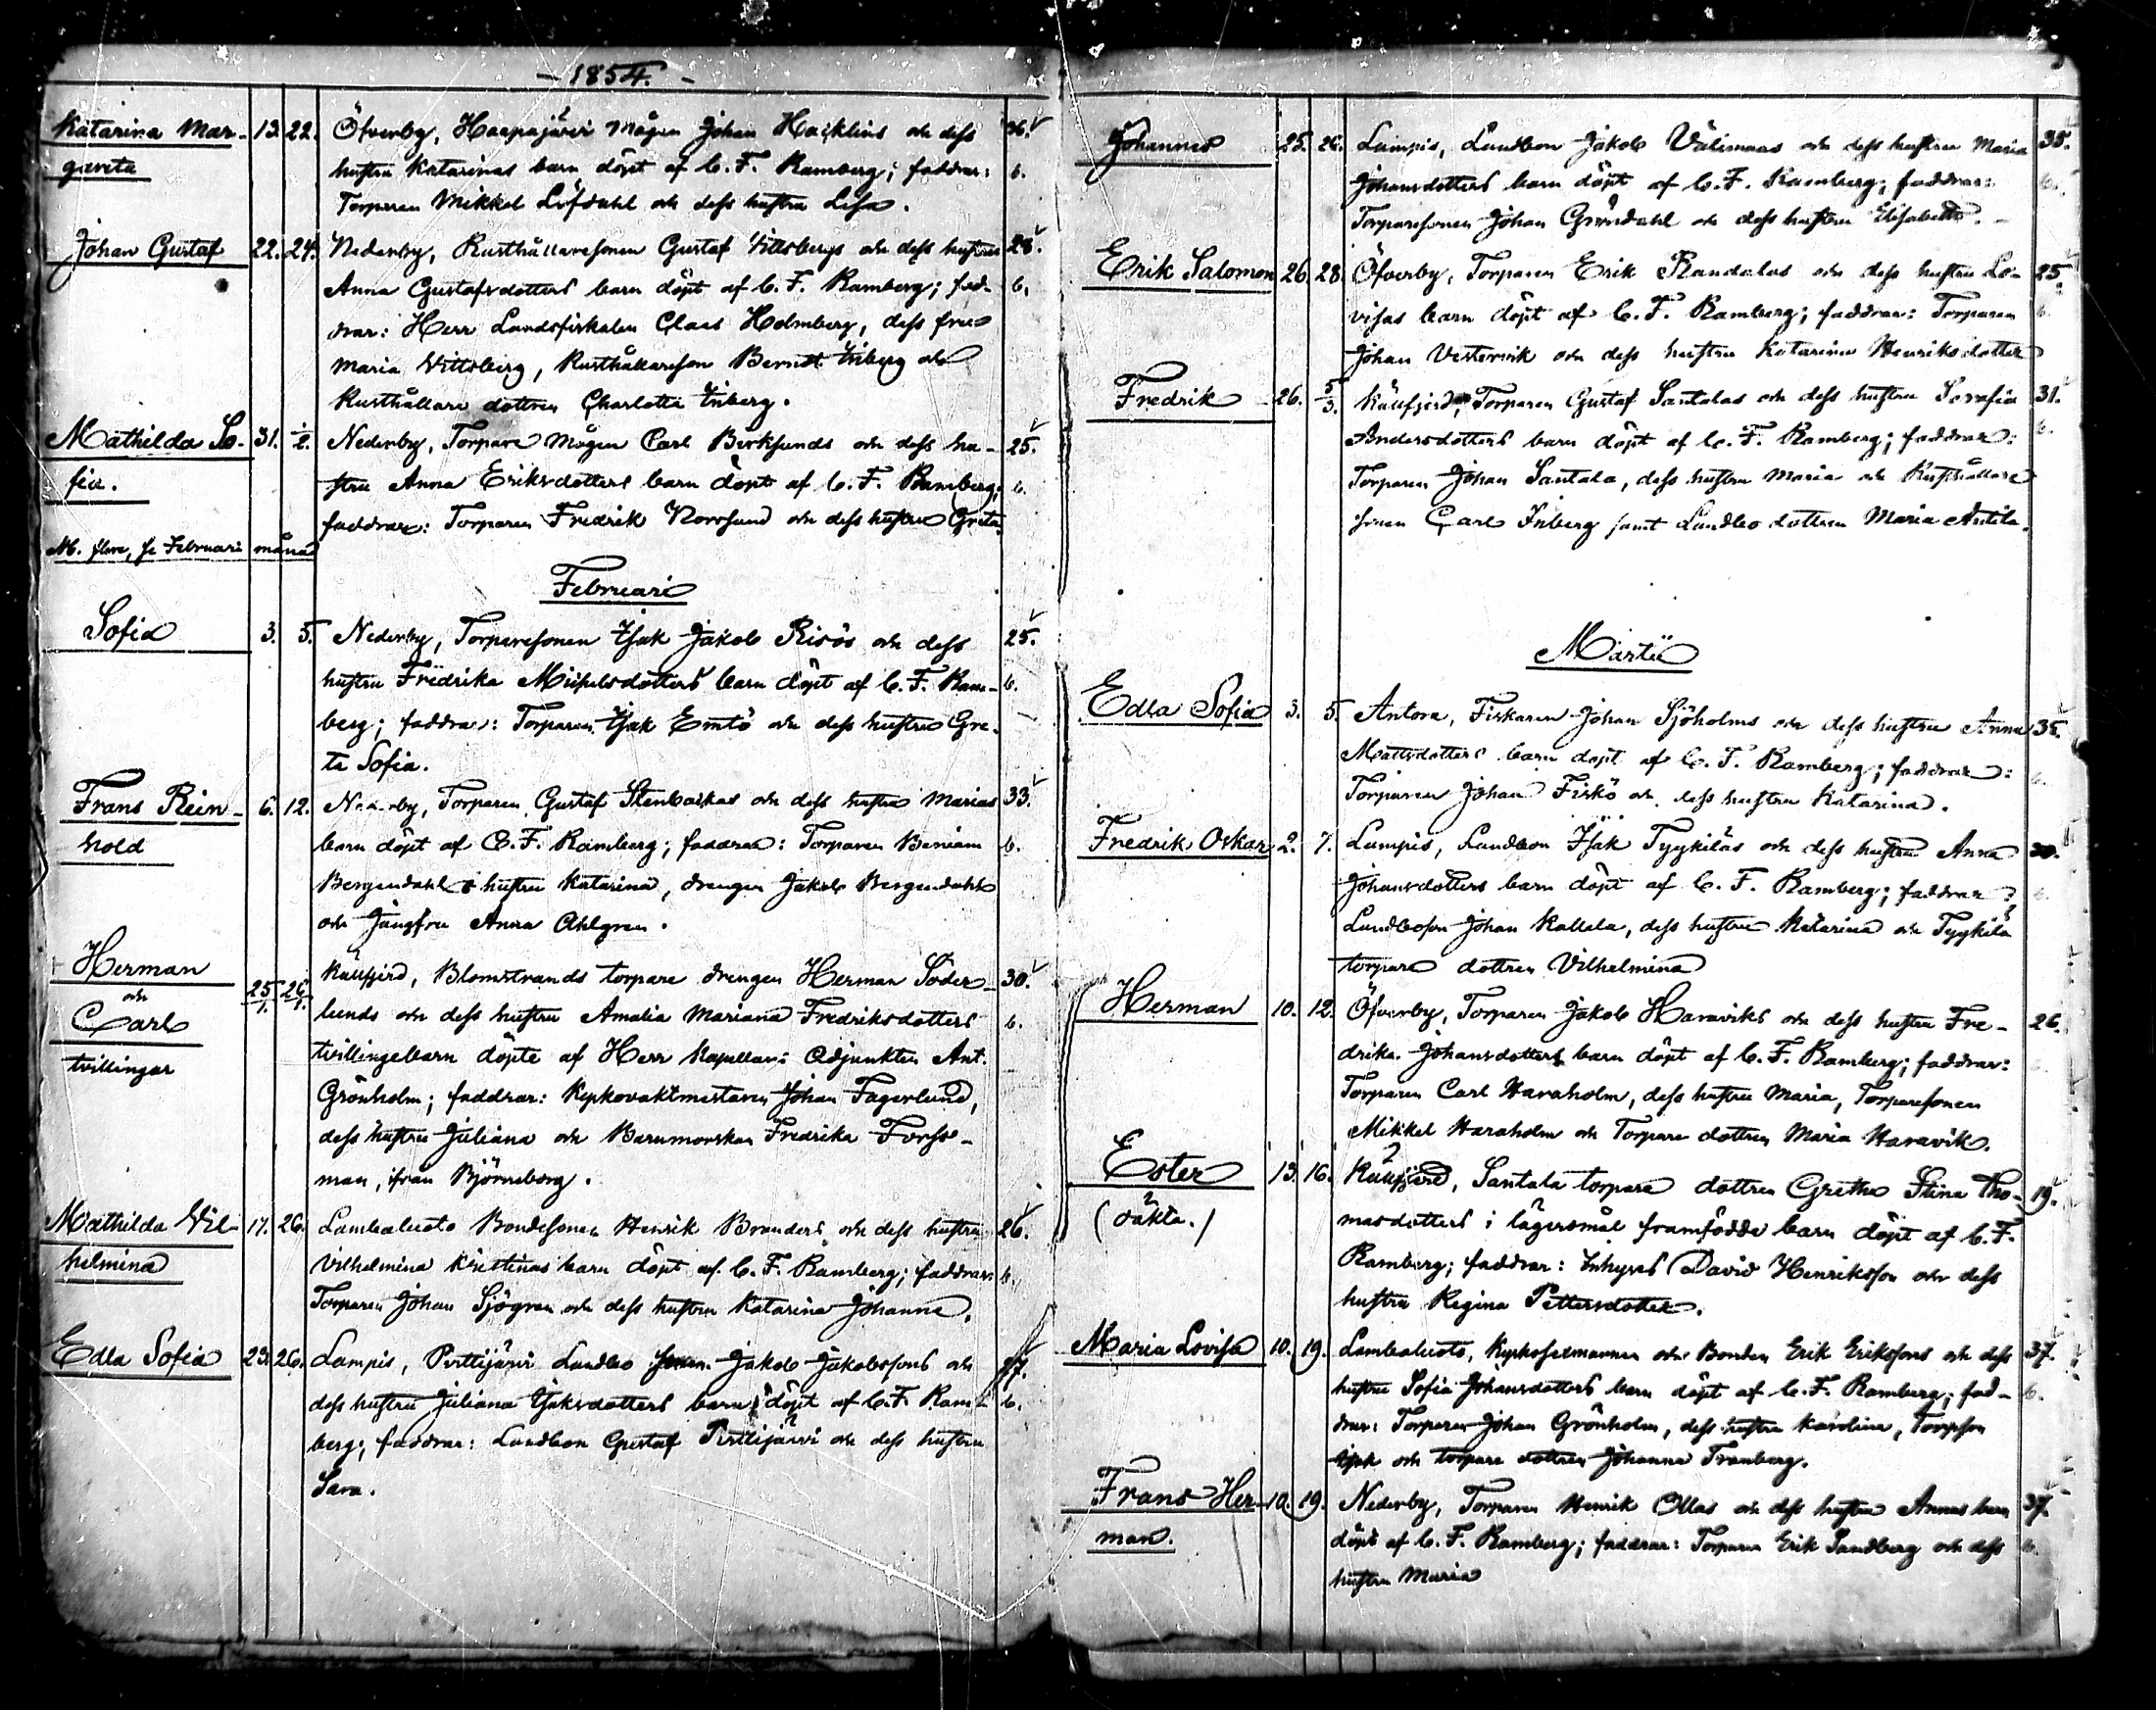 - 1854. -
Katarina Mar- 13. 22. Öfverby, Haapajärvi mågen Johan Hacklins och dess 36.
gareta hustru Katarinas barn döpt af C. F. Ramberg; faddrar: 6.
Torparen Mikkel Löfdahl och dess hustru Lisa.
Johan Gustaf 22. 24. Nederby, Rusthållaresonen Gustaf Vittsbergs och dess hustrus 28.
Anna Gustafsdotters barn döpt af C. F. Ramberg; fad- 6.
drar: Herr Landsfiskalen Claes Holmberg, dess fru
Maria Vittsberg, Rusthållareson Berndt Inberg och
Rusthållare dottren Charlotta Inberg.
Mathilda So- 31. 1/2. Nederby, Torpare mågen Carl Berksunds och dess hu- 25.
fia. stru Anna Eriksdotters barn döpt af C. F. Ramberg; 6.
faddrar: Torparen Fredrik Norrsund och dess hustru Greta.
M. flere, se Februari månad
Februari
Sofia 3. 5. Nederby, Torparesonen Isak Jakob Risös och dess 25.
hustru Fredrika Michelsdotters barn döpt af C. F. Ram- 6.
berg; faddrar: Torparen Isak Emtö och dess hustru Gre-
ta Sofia.
Frans Rein- 6. 12. Nederby, Torparen Gustaf Stenbackas och dess hustru Marias 33.
hold barn döpt af C. F. Ramberg; faddrar: Torparen Beniam 6.
Bergendahl o hustru Katarina, drengen Jakob Bergendahl
och Jungfru Anna Ahlgren.
Herman 25/1. 26/1. Käufjerd, Blomstrands torpare drengen Herman Söder- 30.
och
Carl lunds och dess hustru Amalia Mariana Fredriksdotters 6.
tvillingar tvillingebarn döpte af Herr Kapellans Adjunkten Ant.
Grönholm; faddrar: Kyrkovaktmestaren Johan Fagerlund,
dess hustru Juliana och Barnmorskan Fredrika Forss-
man, ifrån Björneborg.
Mathilda Vil- 17. 26. Lambaluoto Bondesonen Henrik Branders och dess hustru 26.
helmina Vilhelmina Kristinas barn döpt af C. F. Ramberg; faddrar: 6.
Torparen Johan Sjögren och dess hustru Katarina Johanna.
Edla Sofia 23. 26. Lampis, Perttijärvi Landbo Jakob Jakobssons och 27.
dess hustru Juliana Isaksdotters barn döpt af C. F. Ram- 6.
berg; faddrar: Landbon Gustaf Perttijärvi och dess hustru
Sara.
Johannes 25. 26. Lampis, Landbon Jakob Välimaas och dess hustru Maria 35.
Johansdotters barn döpt af C. F. Ramberg; faddrar: 6.
Torparesonen Johan Gröndahl och dess hustru Elisabeth.
Erik Salomon 26. 28. Öfverby, Torparen Erik Randalas och dess hustru Lo- 25.
visas barn döpt af C. F. Ramberg; faddrar: Torparen 6.
Johan Vestervik och dess hustru Katarina Henriksdotter
Fredrik 26. 5/3. Käufjerd, Torparen Gustaf Santalas och dess hustru Serafia 31.
Andersdotters barn döpt af C. F. Ramberg; faddrar: 6.
Torparen Johan Santala, dess hustru Maria och Rusthållare
sonen Carl Inberg samt Landbo dottren Maria Antila.
Martii
Edla Sofia 3. 5. Antora, Fiskaren Johan Sjöholms och dess hustru Anna 35.
Mattsdotters barn döpt af C. F. Ramberg; faddrar: 6.
Torparen Johan Fiskö och dess hustru Katarina.
Fredrik Oskar 2. 7. Lampis, Landbon Isak Tyykiläs och dess hustru Anna 30.
Johansdotters barn döpt af C. F. Ramberg; faddrar: 6.
Landboson Johan Kallela, dess hustru Katarina och Tyykilä
torpare dottren Vilhelmina
Herman 10. 12. Öfverby, Torparen Jakob Haraviks och dess hustru Fre- 26.
drika Johansdotters barn döpt af C. F. Ramberg; faddrar:
Torparen Carl Haraholm, dess hustru Maria, Torparesonen
Mikkel Haraholm och Torpare dottren Maria Haravik.
Ester 13. 16. Käufjerd, Santala torpare dottren Gretha Stina Tho- 19.
(oäkta.) masdotters i lägersmål framfödde barn döpt af C. F.
Ramberg; faddrar: Inhyses David Henriksson och dess
hustru Regina Pettersdotter.
Maria Lovisa 10. 19. Lambaluoto, Kyrkosexmannen och Bonden Erik Erikssons och dess 37.
hustru Sofia Johansdotters barn döpt af C. F. Ramberg; fad- 6.
drar: Torparen Johan Grönholm, dess hustru Karolina, Torpson
Isak och torpare dottren Johanna Tramberg.
Frans Her- 10. 19. Nederby, Torparen Henrik Ollas och dess hustru Annas barn 37.
man. döpt af C. F. Ramberg; faddrar: Torparen Erik Sandberg och dess 6.
hustru Maria